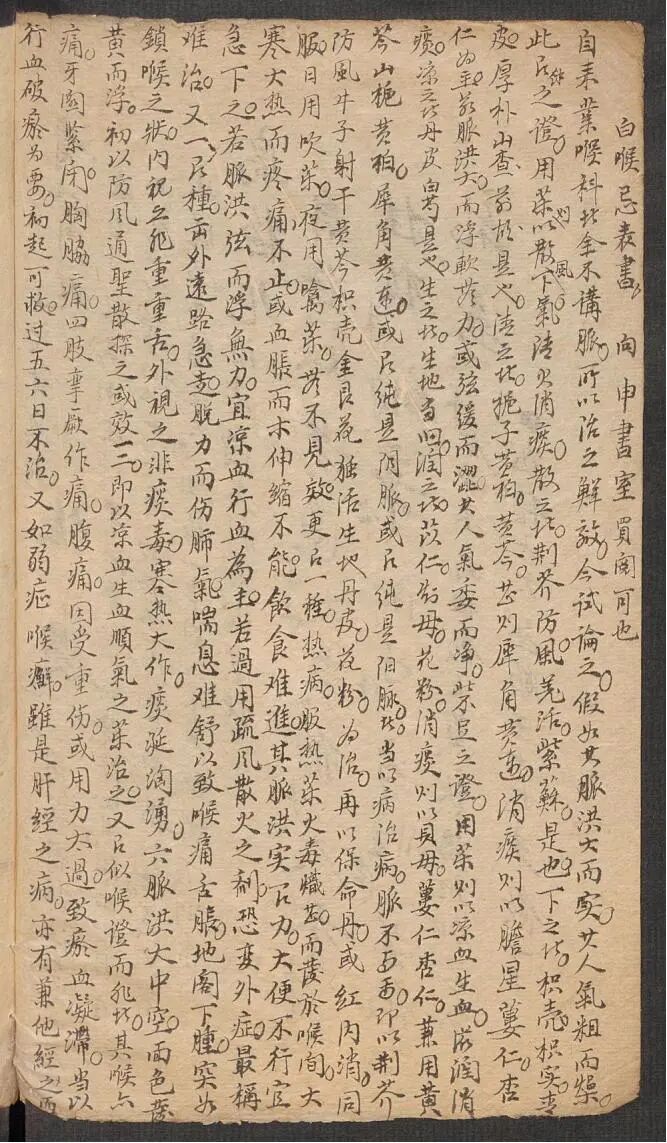 白喉忌表書　向申書室買閱可也
自來業喉科者全不講脈。所以治之鮮效。今試論之。假如其脈洪大而实。其人氣粗而燥。
此乃之證。用药以散風下氣清火消痰。散之者。荆芥防風羌活紫蘇是也。下之者。枳壳枳实青
皮厚朴山查前胡是也。清之者。梔子黄柏。黄芩。甚則犀角黄連。消痰則以膽星蔞仁杏
仁为主。若脈洪大而浮軟無力。或弦缓而澀。其人氣委而净。柴足之證。用药則以凉血生血。滋润消
痰。凉之者丹皮白芍是也。生之者。生地当归。润之者。苡仁。知母。花粉。消痰則以貝母。蔞仁杏仁。兼用黄
芩山栀黄柏。犀角黄連。或只纯是阴脈。或只纯是阳脉。者当以病治病。脈不即以荆芥
防風牛子射干黄芩枳壳金艮花独活生地丹皮花粉。为治。再以保命丹。或红内消。同
服。日用吹药。夜用噙药。若不見效。更有一種。热病。服热药火毒熾甚。而發於喉间。大
寒大热而疼痛不止。或血脹而木伸縮不能。飲食难進。其脈洪实有力。大便不行。宜
急下之。若脈洪弦而浮無力。宜凉血行血為主。若過用疏风散火之剤。恐变外症。最稱
难治。又一種。因外遠路急走。脱力而伤肺氣。喘息难舒。以致喉痛舌脹。地阁下腫。突如
鎖喉之狀。内視之非重重舌。外視之非痰毒。寒热大作。痰涎淘湧。六脈洪大中空。面色發
黄而浮。初以防風通聖散探之或效一二。即以凉血生血順氣之药治之。又有似喉證而非者。其喉亦
痛。牙関紧闭。胸脇痛。四肢拳厥作痛。腹痛。因受重伤。或用力太過。致瘀血凝滯。当以
行血破瘀为要。初起可救。过五六日不治。又如弱症喉癬。雖是肝經之病。亦有兼他經之